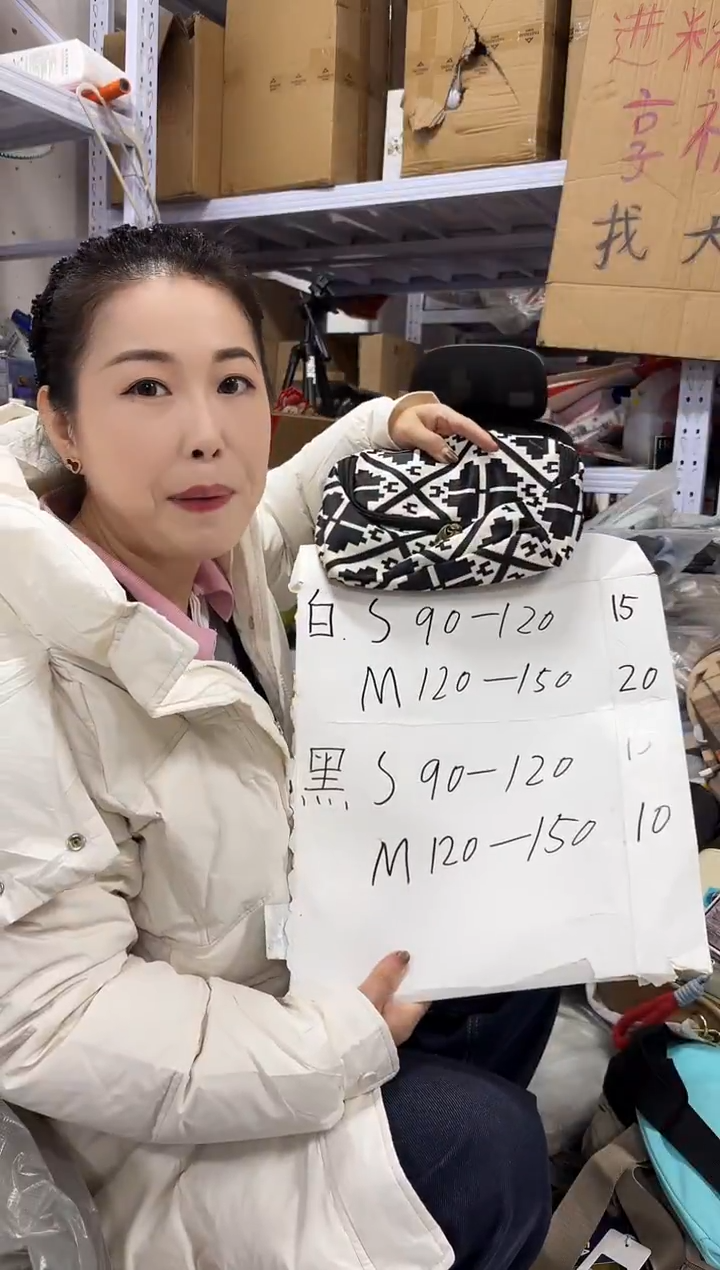 进粉
享福
找大
白. S 90-120 15
M 120-150 20
黑 S 90-120
M 120-150 10